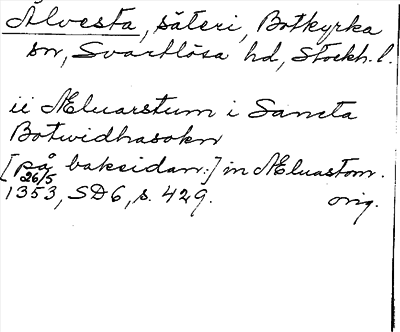 Älvesta, säteri, Botkyrka
sn, Svartlösa hd, Stockh. l.
ii Æluarstum i Sancta
Botwidhasokn
[på baksidan:] in Æluastom.
26/5
1353, SD6, s. 429. orig.